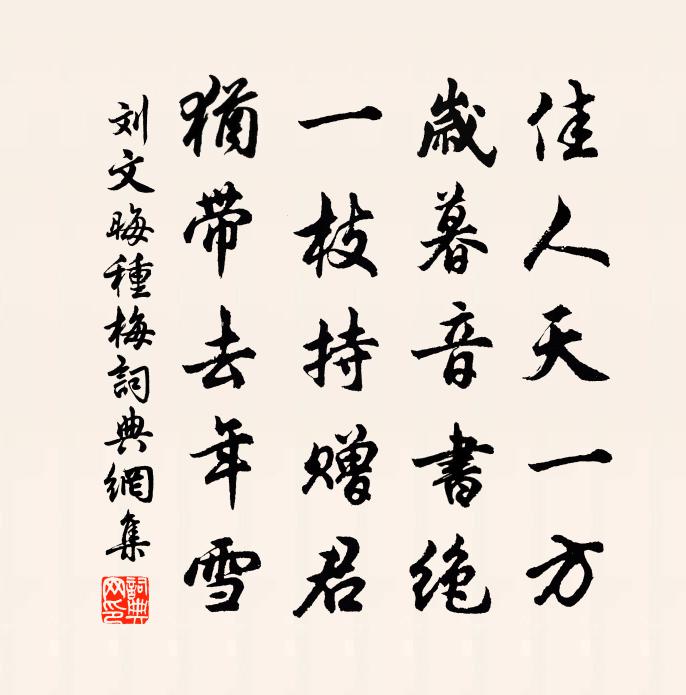 佳人天一方
歲暮音書绝
一枝持赠君
猶带去年雪
刘文晦種梅詞典網集
詞典网印